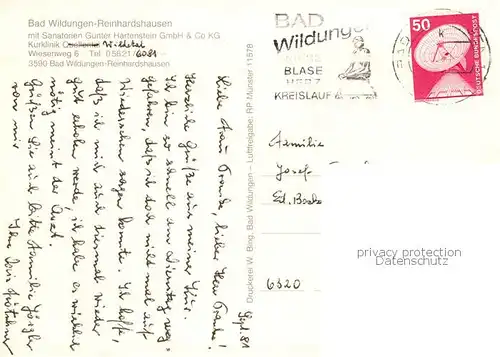 Bad Wildungen-Reinhardshausen
mit Sanatorien Günter Hartenstein GmbH & Co KG
Kurklinik Quellental Wildetal
Wiesenweg 6 Tel 05621/6081
3590 Bad Wildungen-Reinhardshausen
Sept. 81
Liebe Frau Franke, lieber Herr Franke!
Herzliche Grüße aus meiner Kur.
Ich bin so schnell am Dienstag weg-
gefahren, daß ich doch nicht mal auf
Wiedersehen sagen konnte. Ich hoffe,
daß ich mich auch diesmal wieder
gut erholen werde, ich habe es wirklich
nötig meint der Arzt.
Grüßen Sie auch bitte Familie
von mir
Ihre
Druckerei W. Bing, Bad Wildungen – Luftfreigabe, RP Münster 11578
BAD
Wildungen
BLASE
HERZ
KREISLAUF
50
DEUTSCHE BUNDESPOST
Familie
Josef
Ed.
6320
privacy protection
Datenschutz